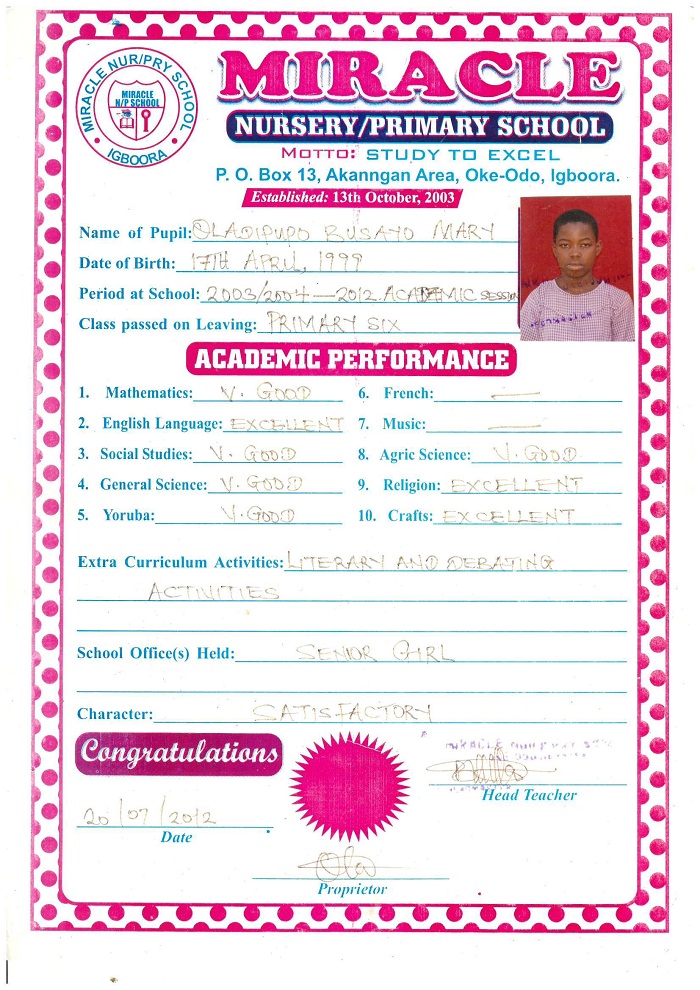 MIRACLE NUR/PRY SCHOOL
MIRACLE
N/P SCHOOL
IGBOORA
MIRACLE
NURSERY/PRIMARY SCHOOL
MOTTO: STUDY TO EXCEL
P. O. Box 13, Akanngan Area, Oke-Odo, Igboora.
Established: 13th October, 2003
Name of Pupil: OLADIPUPO BUSAYO MARY
Date of Birth: 17TH APRIL, 1999
Period at School: 2003/2004 — 2012 ACADEMIC SESSION
Class passed on Leaving: PRIMARY SIX
ACADEMIC PERFORMANCE
1. Mathematics: V. GOOD 6. French: —
2. English Language: EXCELLENT 7. Music: —
3. Social Studies: V. GOOD 8. Agric Science: V. GOOD
4. General Science: V. GOOD 9. Religion: EXCELLENT
5. Yoruba: V. GOOD 10. Crafts: EXCELLENT
Extra Curriculum Activities: LITERARY AND DEBATING
ACTIVITIES
School Office(s) Held: SENIOR GIRL
Character: SATISFACTORY
Congratulations
MIRACLE
Head Teacher
20/07/2012
Date
Proprietor